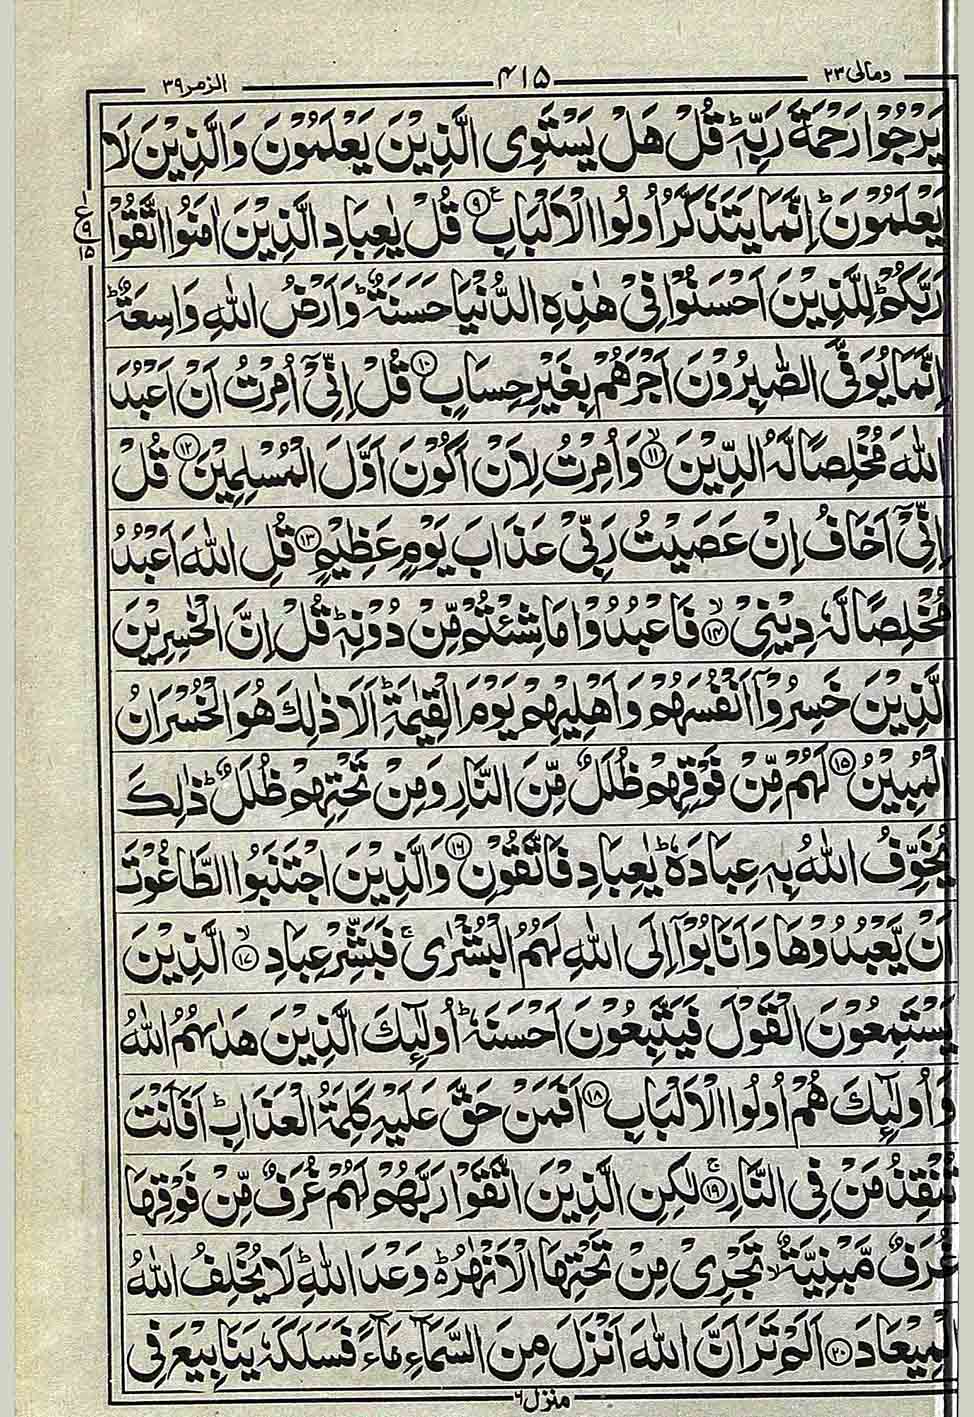 ومالی ۲۳ ۴۱۵ الزمر ۳۹
يَرْجُوْا رَحْمَةَ رَبِّهٖ ؕ قُلْ هَلْ يَسْتَوِی الَّذِيْنَ يَعْلَمُوْنَ وَالَّذِيْنَ لَا
يَعْلَمُوْنَ ؕ اِنَّمَا يَتَذَكَّرُ اُولُوا الْاَلْبَابِ ۹ ع قُلْ يٰعِبَادِ الَّذِيْنَ اٰمَنُوا اتَّقُوْا
ع ۹ ۱۵
رَبَّكُمْ ؕ لِلَّذِيْنَ اَحْسَنُوْا فِیْ هٰذِهِ الدُّنْيَا حَسَنَةٌ ؕ وَاَرْضُ اللّٰهِ وَاسِعَةٌ ؕ
اِنَّمَا يُوَفَّی الصّٰبِرُوْنَ اَجْرَهُمْ بِغَيْرِ حِسَابٍ ۱۰ قُلْ اِنِّیْۤ اُمِرْتُ اَنْ اَعْبُدَ
اللّٰهَ مُخْلِصًا لَّهُ الدِّيْنَ ۱۱ ۙ وَاُمِرْتُ لِاَنْ اَكُوْنَ اَوَّلَ الْمُسْلِمِيْنَ ۱۲ قُلْ
اِنِّیْۤ اَخَافُ اِنْ عَصَيْتُ رَبِّیْ عَذَابَ يَوْمٍ عَظِيْمٍ ۱۳ قُلِ اللّٰهَ اَعْبُدُ
مُخْلِصًا لَّهٗ دِيْنِیْ ۱۴ ۙ فَاعْبُدُوْا مَا شِئْتُمْ مِّنْ دُوْنِهٖ ؕ قُلْ اِنَّ الْخٰسِرِيْنَ
الَّذِيْنَ خَسِرُوْۤا اَنْفُسَهُمْ وَاَهْلِيْهِمْ يَوْمَ الْقِيٰمَةِ ؕ اَلَا ذٰلِكَ هُوَ الْخُسْرَانُ
الْمُبِيْنُ ۱۵ لَهُمْ مِّنْ فَوْقِهِمْ ظُلَلٌ مِّنَ النَّارِ وَمِنْ تَحْتِهِمْ ظُلَلٌ ؕ ذٰلِكَ
يُخَوِّفُ اللّٰهُ بِهٖ عِبَادَهٗ ؕ يٰعِبَادِ فَاتَّقُوْنِ ۱۶ وَالَّذِيْنَ اجْتَنَبُوا الطَّاغُوْتَ
اَنْ يَّعْبُدُوْهَا وَاَنَابُوْۤا اِلَی اللّٰهِ لَهُمُ الْبُشْرٰی ۚ فَبَشِّرْ عِبَادِ ۱۷ ۙ الَّذِيْنَ
يَسْتَمِعُوْنَ الْقَوْلَ فَيَتَّبِعُوْنَ اَحْسَنَهٗ ؕ اُولٰٓئِكَ الَّذِيْنَ هَدٰىهُمُ اللّٰهُ
وَاُولٰٓئِكَ هُمْ اُولُوا الْاَلْبَابِ ۱۸ اَفَمَنْ حَقَّ عَلَيْهِ كَلِمَةُ الْعَذَابِ ؕ اَفَاَنْتَ
تُنْقِذُ مَنْ فِی النَّارِ ۱۹ ۚ لٰكِنِ الَّذِيْنَ اتَّقَوْا رَبَّهُمْ لَهُمْ غُرَفٌ مِّنْ فَوْقِهَا
غُرَفٌ مَّبْنِيَّةٌ ۙ تَجْرِیْ مِنْ تَحْتِهَا الْاَنْهٰرُ ؕ وَعْدَ اللّٰهِ ؕ لَا يُخْلِفُ اللّٰهُ
الْمِيْعَادَ ۲۰ اَلَمْ تَرَ اَنَّ اللّٰهَ اَنْزَلَ مِنَ السَّمَآءِ مَآءً فَسَلَكَهٗ يَنَابِيْعَ فِی
منزل ۶